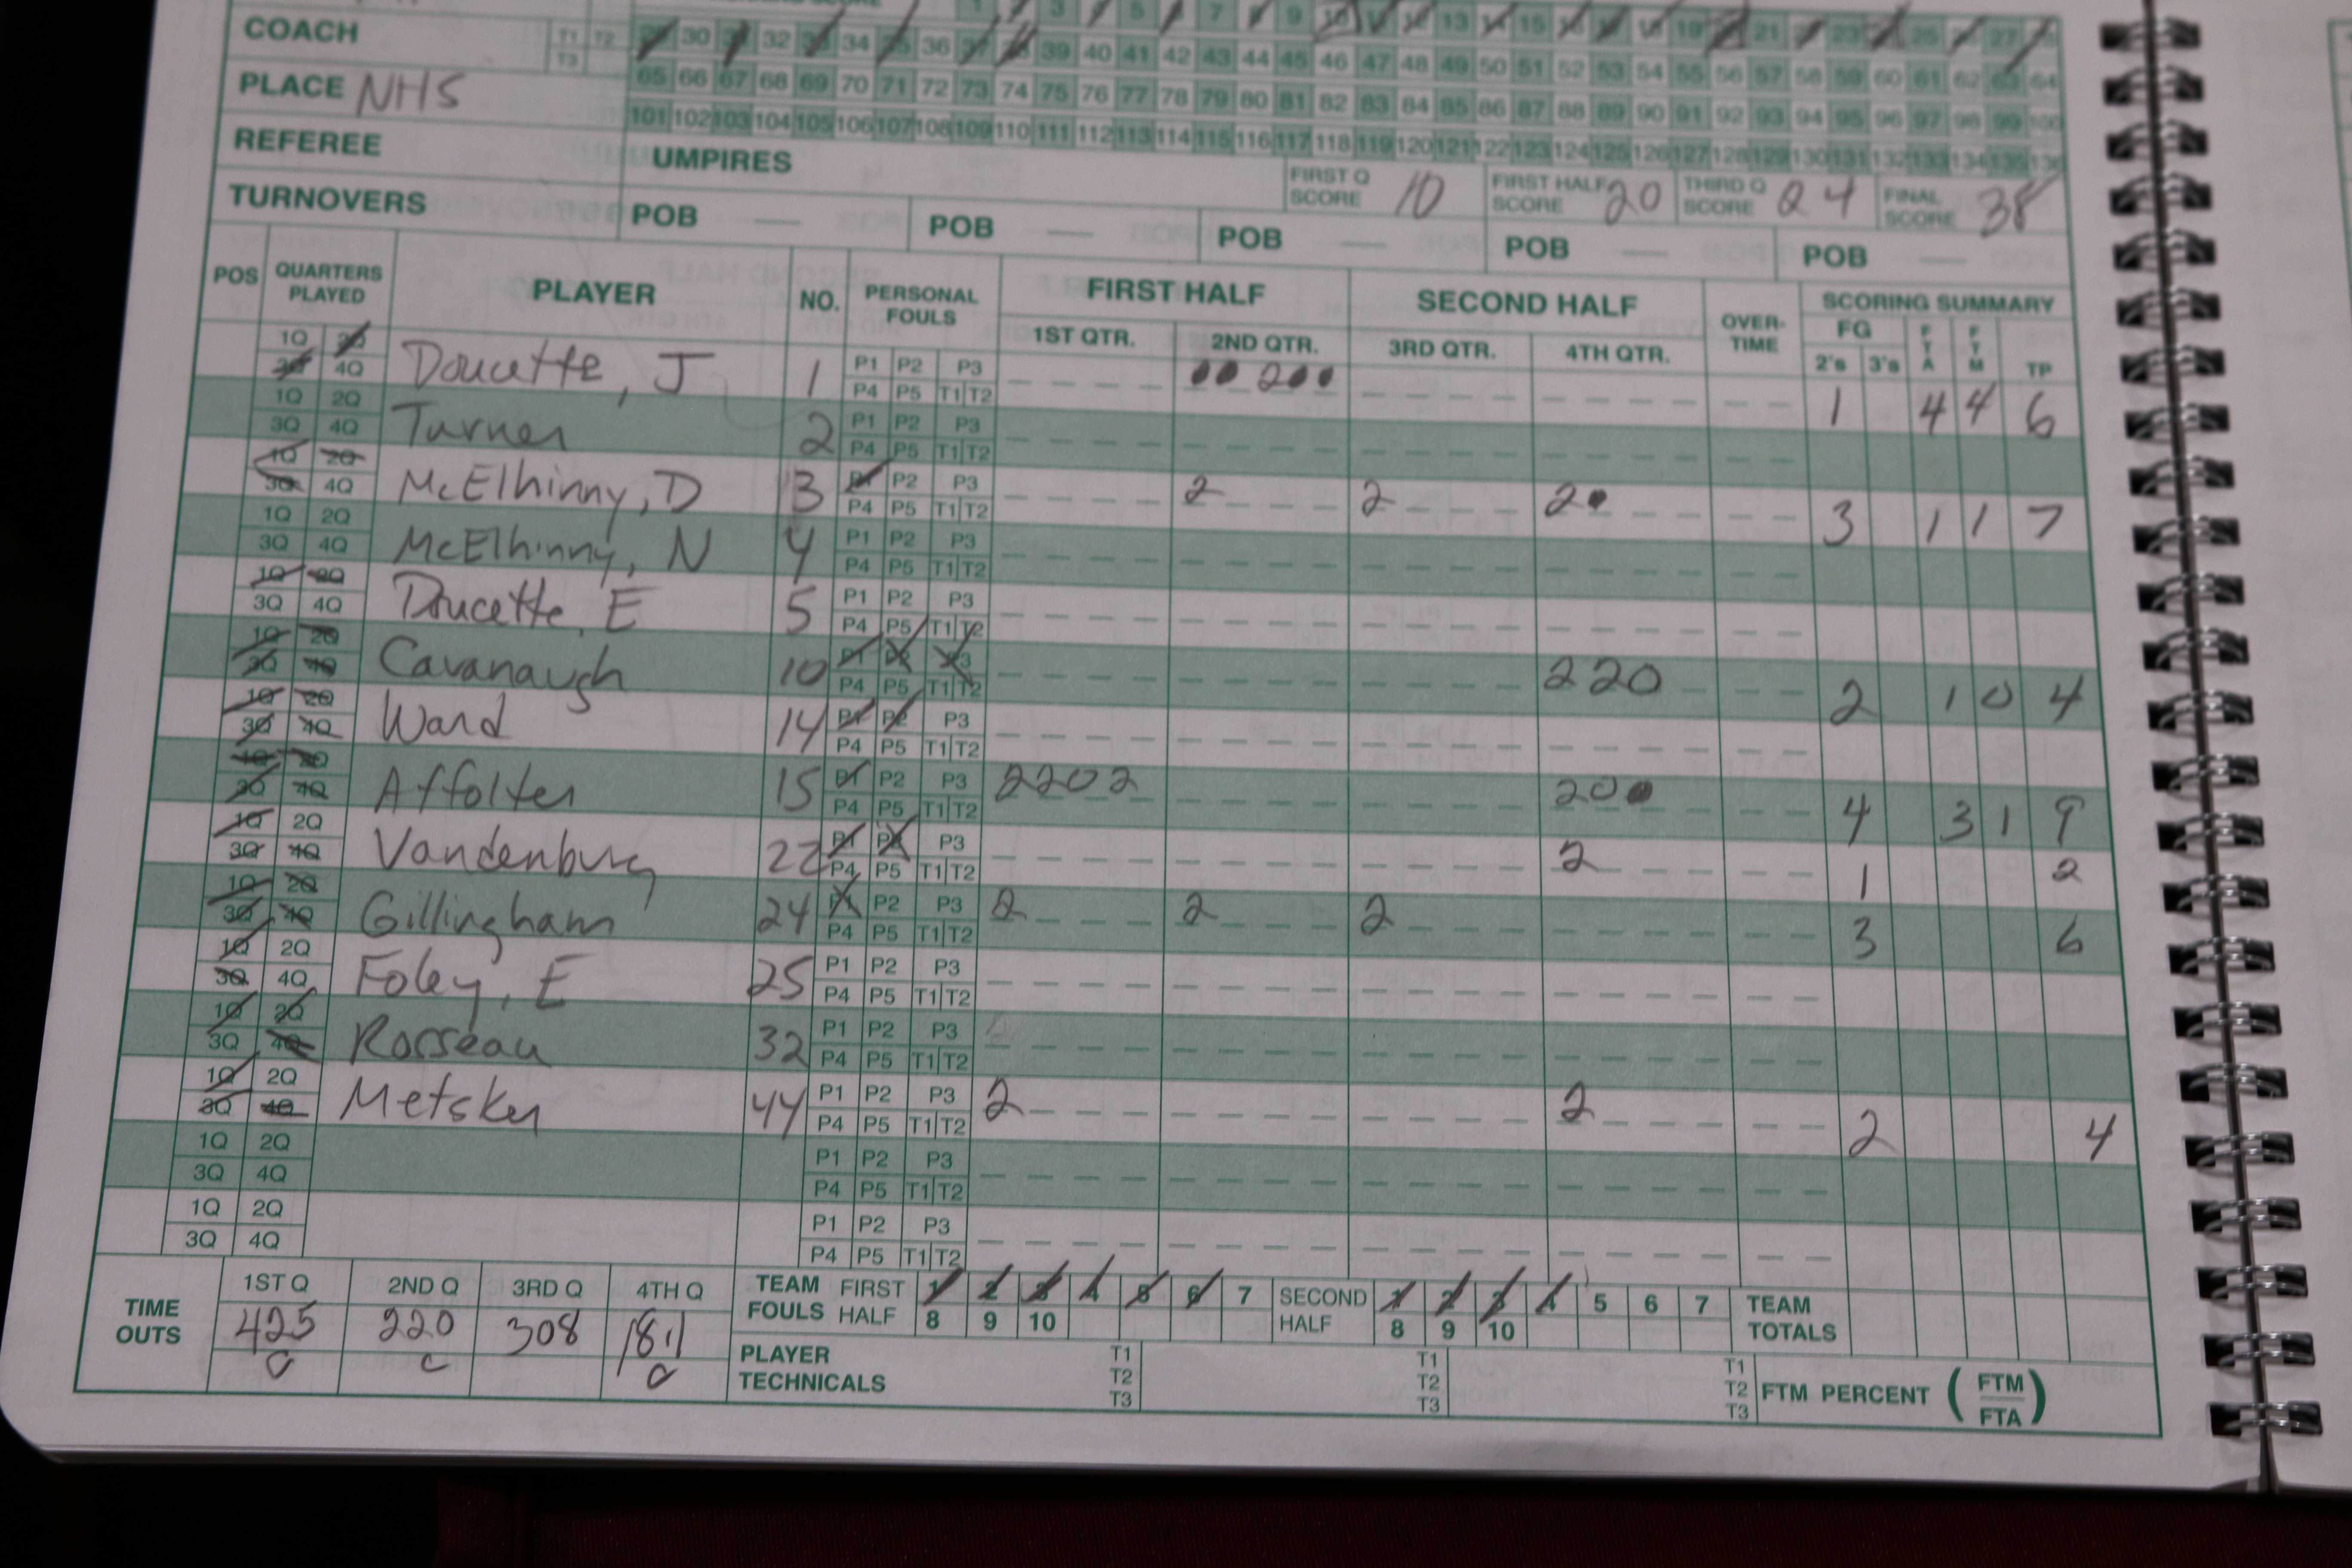 COACH T1 T2 T3
1 3 5 7 9 13 15 19 21 23 25 27
30 32 34 36 39 40 41 42 43 44 45 46 47 48 49 50 51 52 53 54 55 56 57 58 59 60 61 62 63 64
PLACE NHS
65 66 67 68 69 70 71 72 73 74 75 76 77 78 79 80 81 82 83 84 85 86 87 88 89 90 91 92 93 94 95 96 97 98 99 100
101 102 103 104 105 106 107 108 109 110 111 112 113 114 115 116 117 118 119 120 121 122 123 124 125 126 127 128 129 130 131 132 133 134 135 136
REFEREE UMPIRES FIRST Q SCORE 10 FIRST HALF SCORE 20 THIRD Q SCORE 24 FINAL SCORE 38
TURNOVERS POB — POB — POB — POB — POB —
POS QUARTERS PLAYED PLAYER NO. PERSONAL FOULS FIRST HALF SECOND HALF OVER-TIME SCORING SUMMARY
1ST QTR. 2ND QTR. 3RD QTR. 4TH QTR. FG 2's 3's FTA FTM TP
1Q 2Q Doucette, J 1 P1 P2 P3 2 1 4 4 6
3Q 4Q P4 P5 T1 T2
1Q 2Q Turner 2 P1 P2 P3
3Q 4Q P4 P5 T1 T2
1Q 2Q McElhinny, D 3 P1 P2 P3 2 2 2 3 1 1 7
3Q 4Q P4 P5 T1 T2
1Q 2Q McElhinny, N 4 P1 P2 P3
3Q 4Q P4 P5 T1 T2
1Q 2Q Doucette, E 5 P1 P2 P3
3Q 4Q P4 P5 T1 T2
1Q 2Q Cavanaugh 10 P1 P2 P3 2 2 0 2 1 0 4
3Q 4Q P4 P5 T1 T2
1Q 2Q Ward 14 P1 P2 P3
3Q 4Q P4 P5 T1 T2
1Q 2Q Affolter 15 P1 P2 P3 2 2 0 2 2 0 4 3 1 9
3Q 4Q P4 P5 T1 T2
1Q 2Q Vandenburg 22 P1 P2 P3 2 1 2
3Q 4Q P4 P5 T1 T2
1Q 2Q Gillingham 24 P1 P2 P3 2 2 2 3 6
3Q 4Q P4 P5 T1 T2
1Q 2Q Foley, E 25 P1 P2 P3
3Q 4Q P4 P5 T1 T2
1Q 2Q Rosseau 32 P1 P2 P3
3Q 4Q P4 P5 T1 T2
1Q 2Q Metsker 44 P1 P2 P3 2 2 2 4
3Q 4Q P4 P5 T1 T2
1Q 2Q P1 P2 P3
3Q 4Q P4 P5 T1 T2
1Q 2Q P1 P2 P3
3Q 4Q P4 P5 T1 T2
TIME OUTS 1ST Q 2ND Q 3RD Q 4TH Q
425 220 308 18.1
TEAM FOULS FIRST HALF 1 2 3 4 5 6 7 SECOND HALF 1 2 3 4 5 6 7 TEAM TOTALS
8 9 10 8 9 10
PLAYER TECHNICALS T1 T2 T3 T1 T2 T3 T1 T2 T3 FTM PERCENT (FTM/FTA)